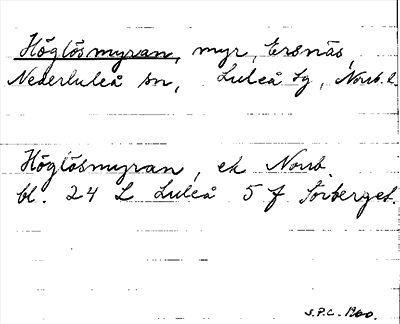 Höglösmyran, myr, Ersnäs,
Nederluleå sn, Luleå tg, Norrb. l.
Höglösmyran, ek Norrb.
bl. 24 L Luleå 5 f Sörberget.
S.P.C. 1960.